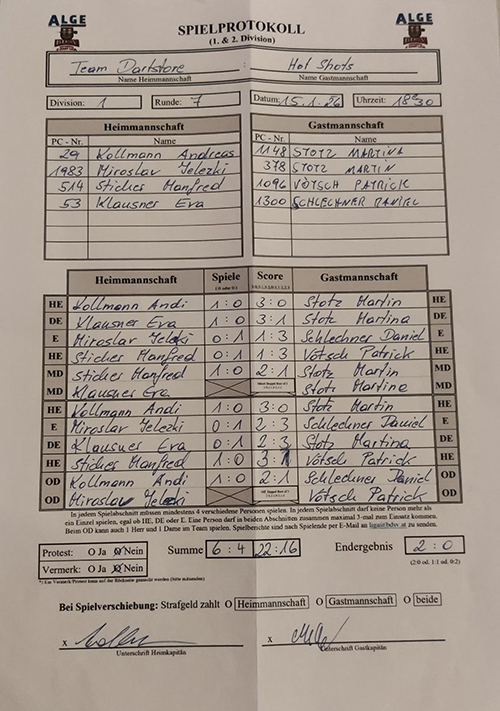 ALGE SPIELPROTOKOLL ALGE
(1. & 2. Division)
Team Dartstore : Hot Shots
Name Heimmannschaft Name Gastmannschaft
Division: 1 Runde: 7 Datum: 15.1.26 Uhrzeit: 18:30
Heimmannschaft Gastmannschaft
PC - Nr. Name PC - Nr. Name
29 Kollmann Andreas 1148 STOTZ MARTINA
1983 Miroslav Jelezki 378 STOTZ MARTIN
514 Sticher Manfred 1096 VÖTSCH PATRICK
53 Klausner Eva 1300 SCHLECHNER DANIEL
Heimmannschaft Spiele Score Gastmannschaft
HE Kollmann Andi 1:0 3:0 Stotz Martin HE
DE Klausner Eva 1:0 3:1 Stotz Martina DE
E Miroslav Jelezki 0:1 1:3 Schlechner Daniel E
HE Sticher Manfred 0:1 1:3 Vötsch Patrick HE
MD Sticher Manfred 1:0 2:1 Stotz Martin MD
MD Klausner Eva Stotz Martina MD
HE Kollmann Andi 1:0 3:0 Stotz Martin HE
E Miroslav Jelezki 0:1 2:3 Schlechner Daniel E
DE Klausner Eva 0:1 2:3 Stotz Martina DE
HE Sticher Manfred 1:0 3:1 Vötsch Patrick HE
OD Kollmann Andi 1:0 2:1 Schlechner Daniel OD
OD Miroslav Jelezki Vötsch Patrick OD
In jedem Spielabschnitt müssen mindestens 4 verschiedene Personen spielen. In jedem Spielabschnitt darf keine Person mehr als
ein Einzel spielen, egal ob HE, DE oder E. Eine Person darf in beiden Abschnitten zusammen maximal 3-mal zum Einsatz kommen.
Beim OD kann auch 1 Herr und 1 Dame im Team spielen. Spielberichte sind nach Spielende per E-Mail an liga@bdvv.at zu senden.
Protest: O Ja O Nein Summe 6:4 22:16 Endergebnis 2:0
Vermerk: O Ja O Nein (2:0 od. 1:1 od. 0:2)
Bei Spielverschiebung: Strafgeld zahlt O Heimmannschaft O Gastmannschaft O beide
x x
Unterschrift Heimkapitän Unterschrift Gastkapitän